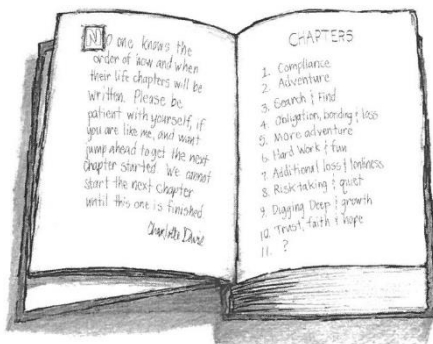 No one knows the
order of how and when
their life chapters will be
written. Please be
patient with yourself, if
you are like me, and want
jump ahead to get the next
chapter started. We cannot
start the next chapter
until this one is finished
CHAPTERS
1. Compliance
2. Adventure
3. Search & Find
4. Obligation, bonding & loss
5. More adventure
6. Hard Work & fun
7. Additional loss & loneliness
8. Risk-taking & quiet
9. Digging Deep & growth
10. Trust, faith & hope
11. ?